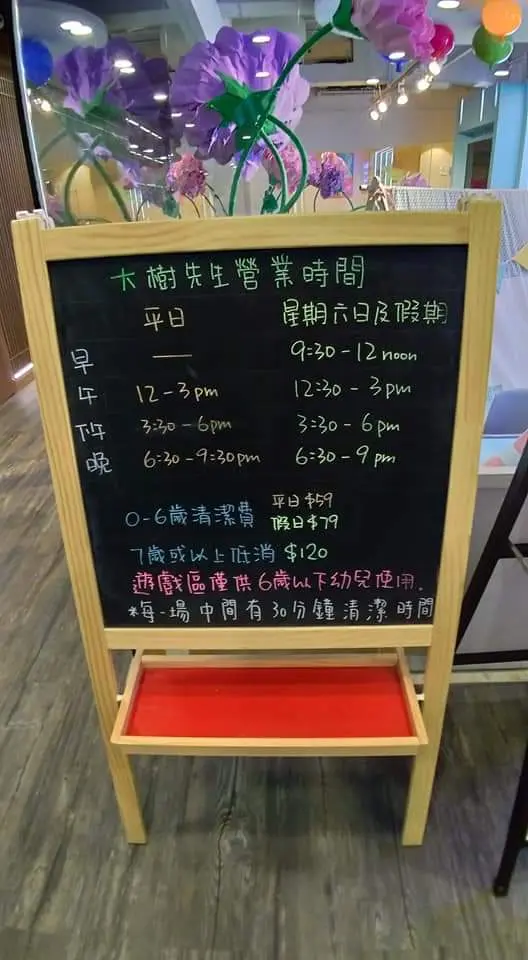 大樹先生營業時間
平日 星期六日及假期
早 — 9:30-12 noon
午 12-3pm 12:30-3pm
下午 3:30-6pm 3:30-6pm
晚 6:30-9:30pm 6:30-9pm
0-6歲清潔費 平日$59
假日$79
7歲或以上低消 $120
遊戲區僅供6歲以下幼兒使用.
*每一場中間有30分鐘清潔時間